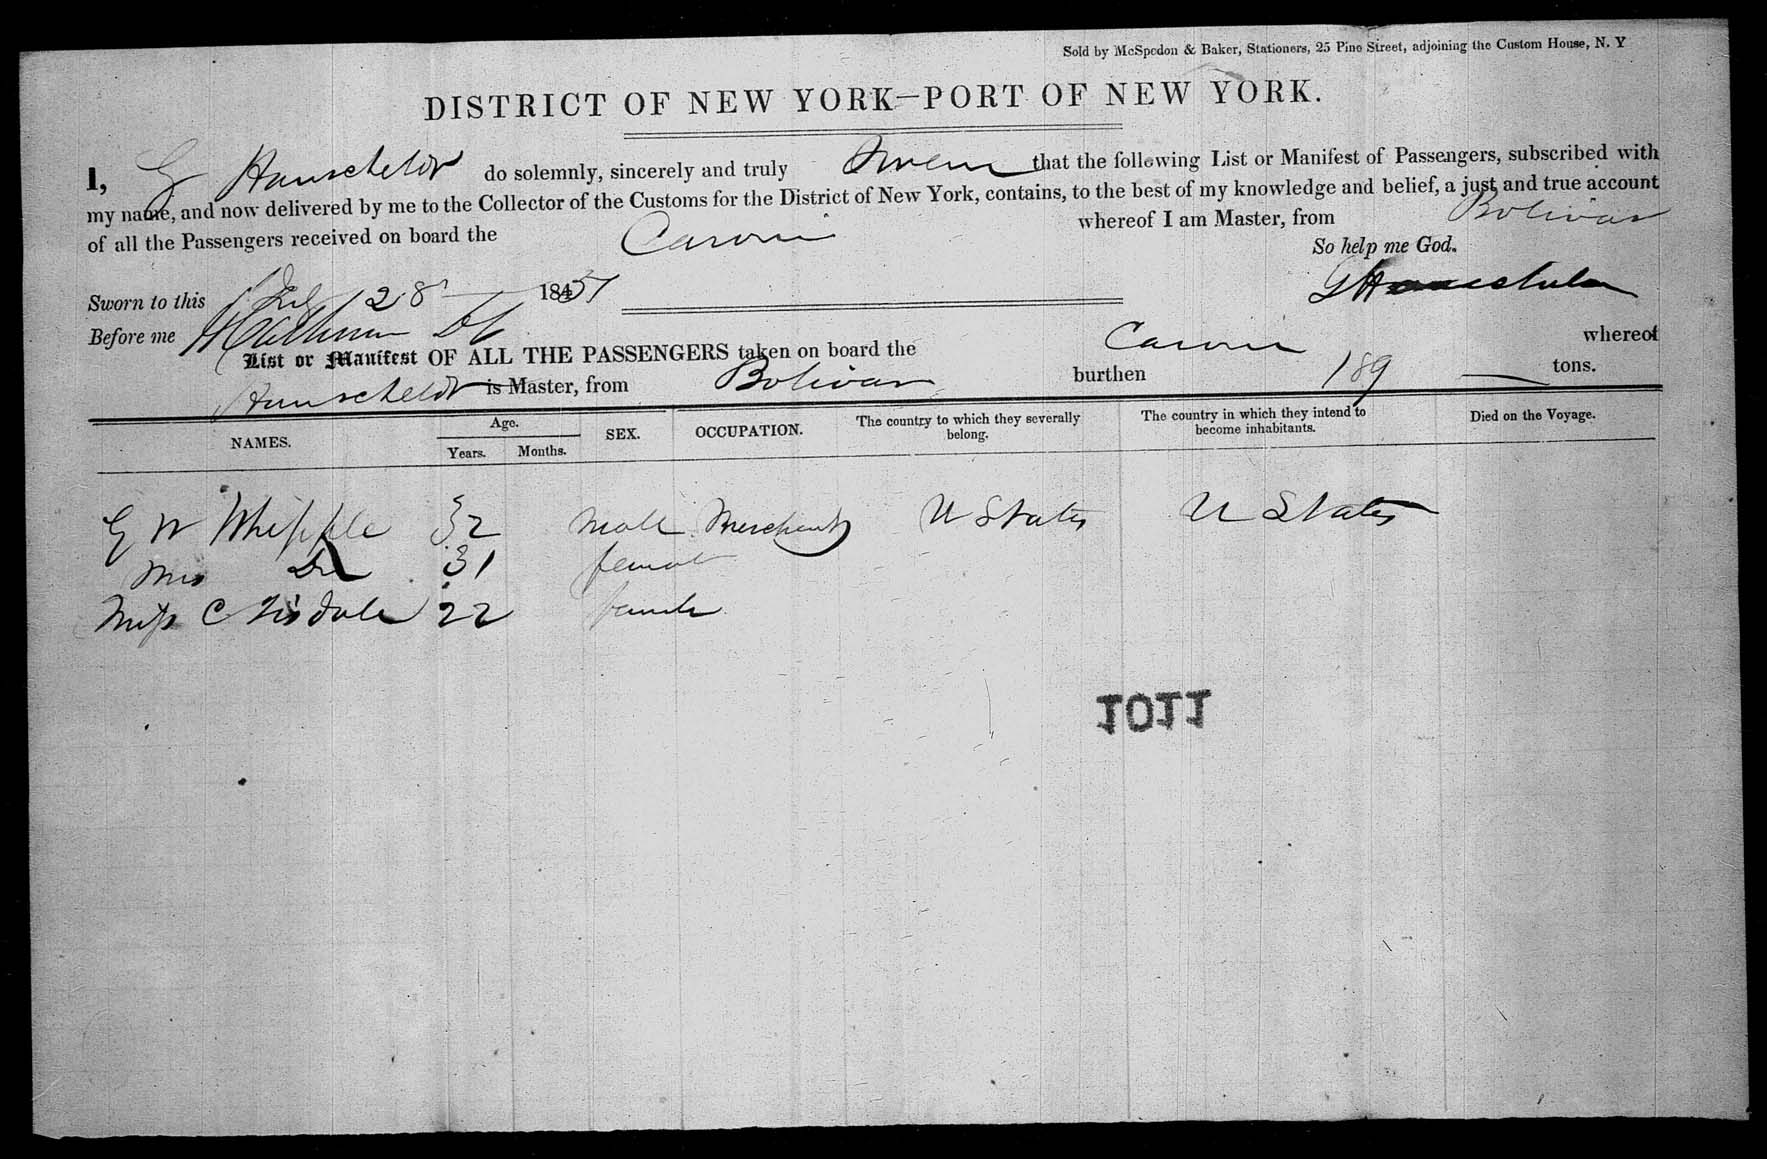 Sold by McSpedon & Baker, Stationers, 25 Pine Street, adjoining the Custom House, N. Y
DISTRICT OF NEW YORK—PORT OF NEW YORK.
I, G do solemnly, sincerely and truly Swear that the following List or Manifest of Passengers, subscribed with
my name, and now delivered by me to the Collector of the Customs for the District of New York, contains, to the best of my knowledge and belief, a just and true account
of all the Passengers received on board the whereof I am Master, from Bolivar
So help me God.
Sworn to this 28 1851
Before me
List or Manifest OF ALL THE PASSENGERS taken on board the whereof
is Master, from Bolivar burthen 189 tons.
NAMES. Age. Years. Months. SEX. OCCUPATION. The country to which they severally belong. The country in which they intend to become inhabitants. Died on the Voyage.
G W Whipple 32 Male Merchant U States U States
Mrs Do 31 female
Miss C Tisdale 22 female
1011